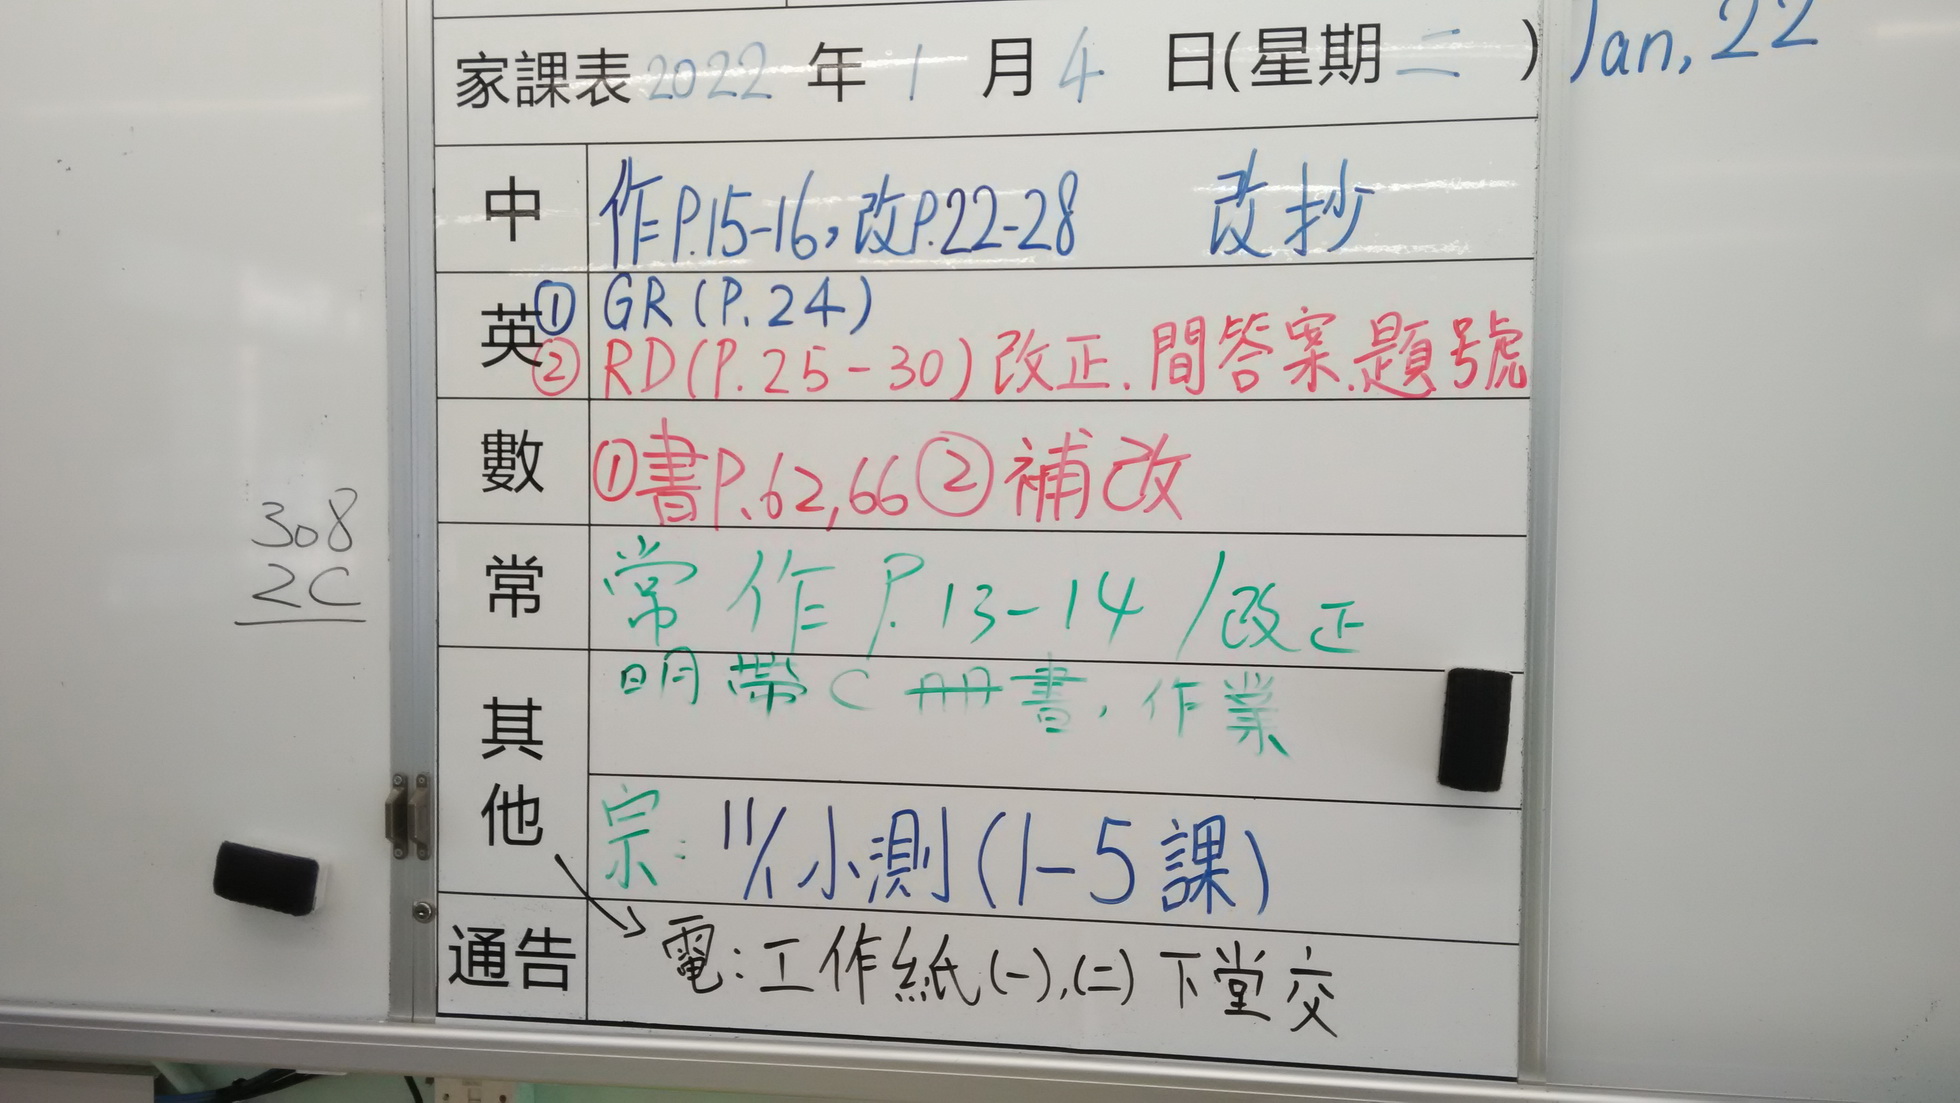 家課表 2022 年 1 月 4 日(星期 二 ) Jan, 22
中 作P.15-16,改P.22-28 改抄
英 ① GR (P.24)
② RD (P.25-30) 改正.間答案.題號
數 ①書P.62,66 ②補改
常 常作 P.13-14 /改正
其他 明帶C冊書,作業
宗: 11/1小測(1-5課)
通告 電:工作紙(一),(二)下堂交
308
2C